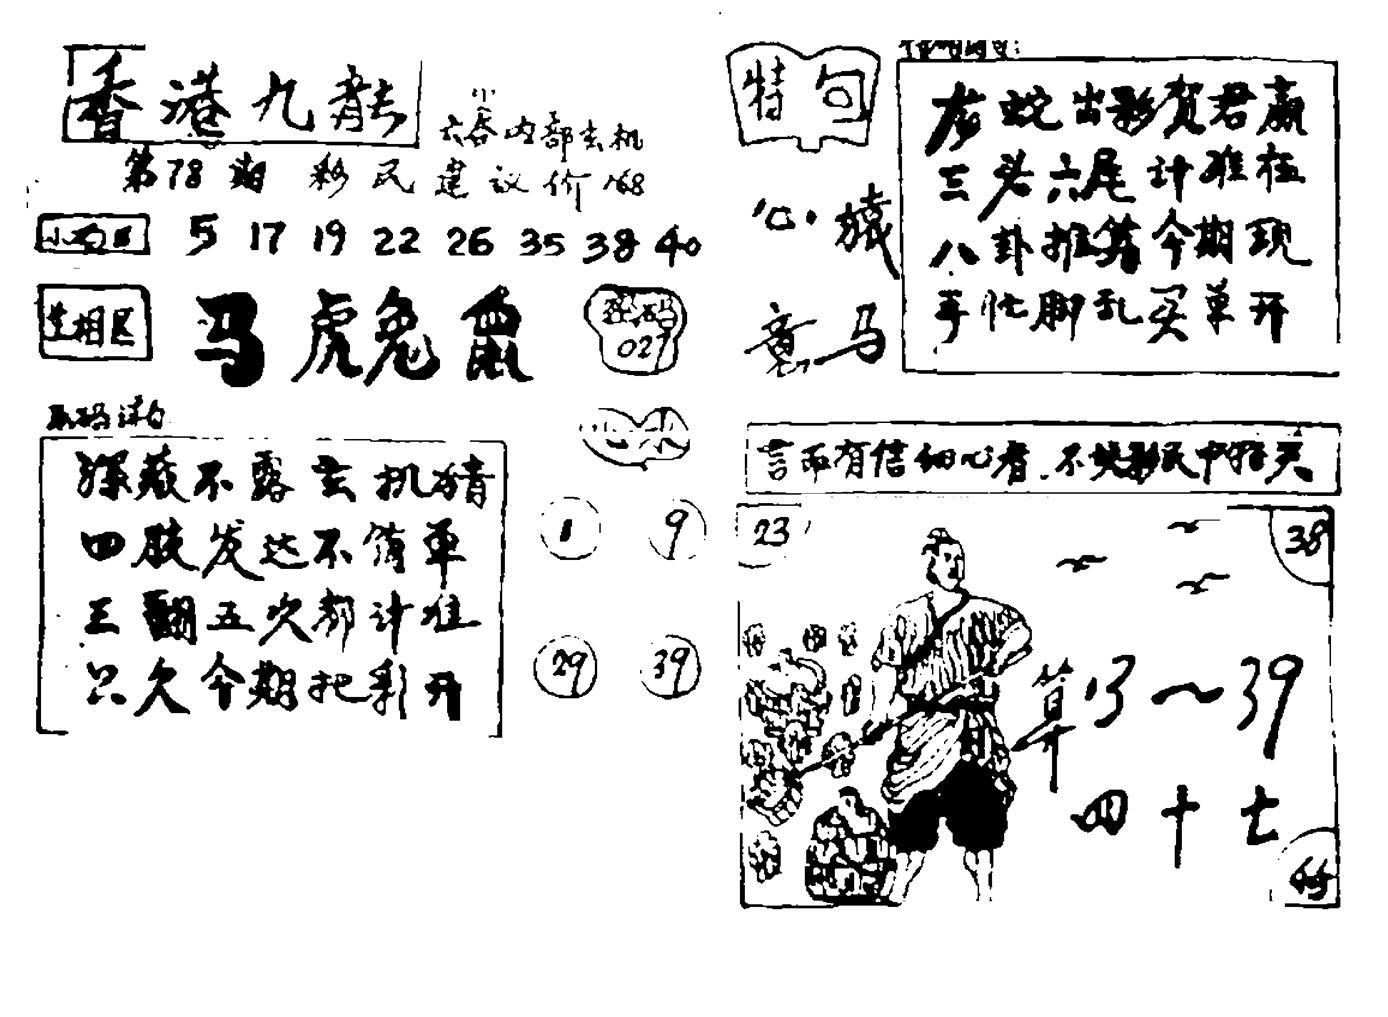 香港九龍
六合内部玄机
第78期 彩民建议价 168
5 17 19 22 26 35 38 40
生相区
马虎兔鼠
027
深藏不露玄机猜
四肢发达不简单
三翻五次都计准
只欠今期把彩开
心水
1 9
29 39
特句
心猿
意马
龙蛇出彩贺君赢
三头六尾计难极
八卦推算今期现
手忙脚乱买单开
言而有信细心看
23
38
算13～39
四十七